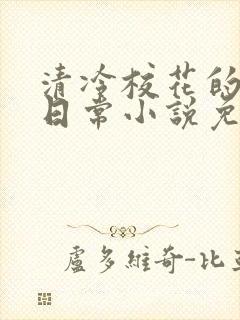 清冷校花的
日常小說免
盧多維奇-比亞